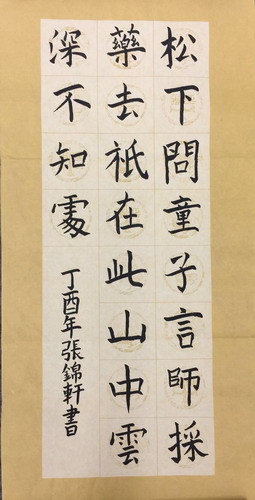 松下問童子言師採
藥去祇在此山中雲
深不知處
丁酉年張錦軒書